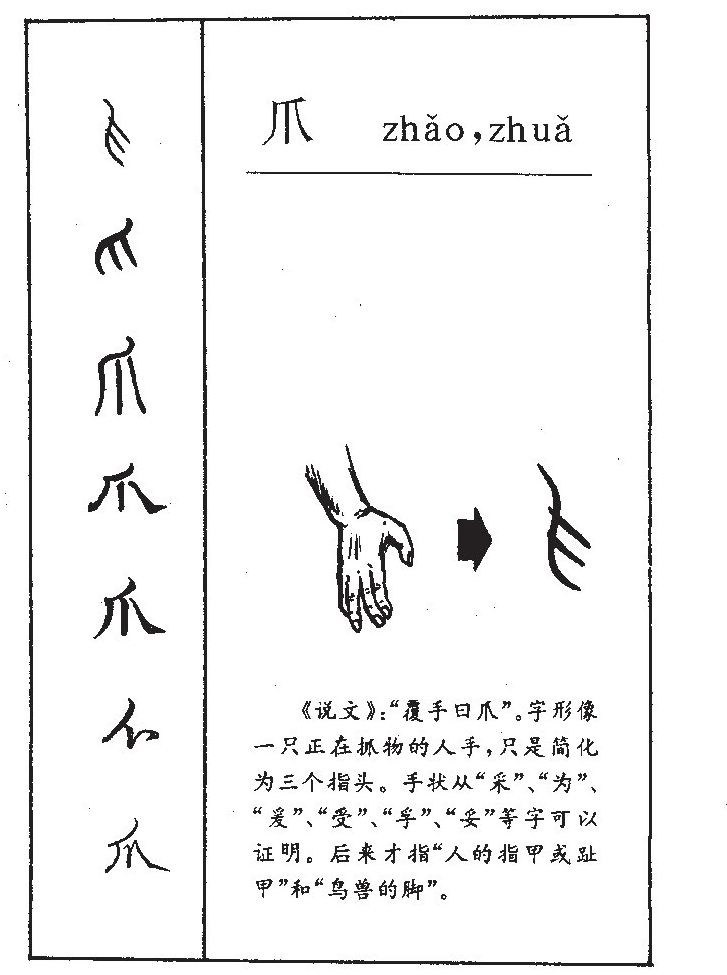 爪 zhǎo,zhuǎ
《说文》:“覆手曰爪”。字形像
一只正在抓物的人手,只是简化
为三个指头。手状从“采”、“为”、
“爰”、“受”、“孚”、“妥”等字可以
证明。后来才指“人的指甲或趾
甲”和“鸟兽的脚”。